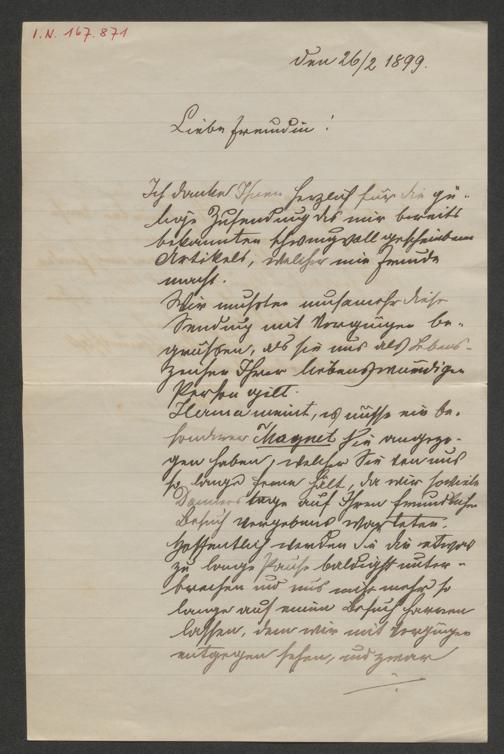 I.N. 167.871
den 26/2 1899.
Liebe Freundin!
Ich danke Ihnen herzlich für die gü-
tige Zusendung des mir bereits
bekannten schwungvoll geschriebenen
Artikels, welcher mir Freude
macht.
Wir mussten nunmehr diese
Sendung mit Vergnügen be-
grüssen, als sie uns als Lebens-
zeichen Ihrer liebenswürdigen
Person gilt.
Mama meint, es müsse ein be-
sonderer Magnet Sie angezo-
gen haben, welcher Sie von uns
so lange ferne hält, da wir soviele
Donners tage auf Ihren freundlichen
Besuch vergebens warteten.
Hoffentlich werden Sie die etwas
zu lange Pause baldigst unter-
brechen und uns nicht mehr so
lange auf einen Besuch harren
lassen, dem wir mit Vergnügen
entgegen sehen, und zwar